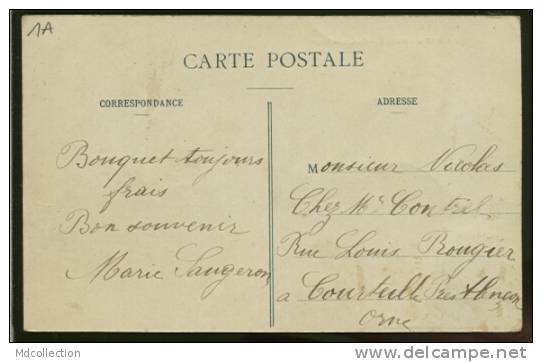 1A
CARTE POSTALE
CORRESPONDANCE
ADRESSE
Bouquet toujours
frais
Bon souvenir
Marie Saugeron
Monsieur Nicolas
Chez Mr Contrel
Rue Louis Rougier
a Courteille Près Alençon
Orne
Mdcollection
www.delcampe.net